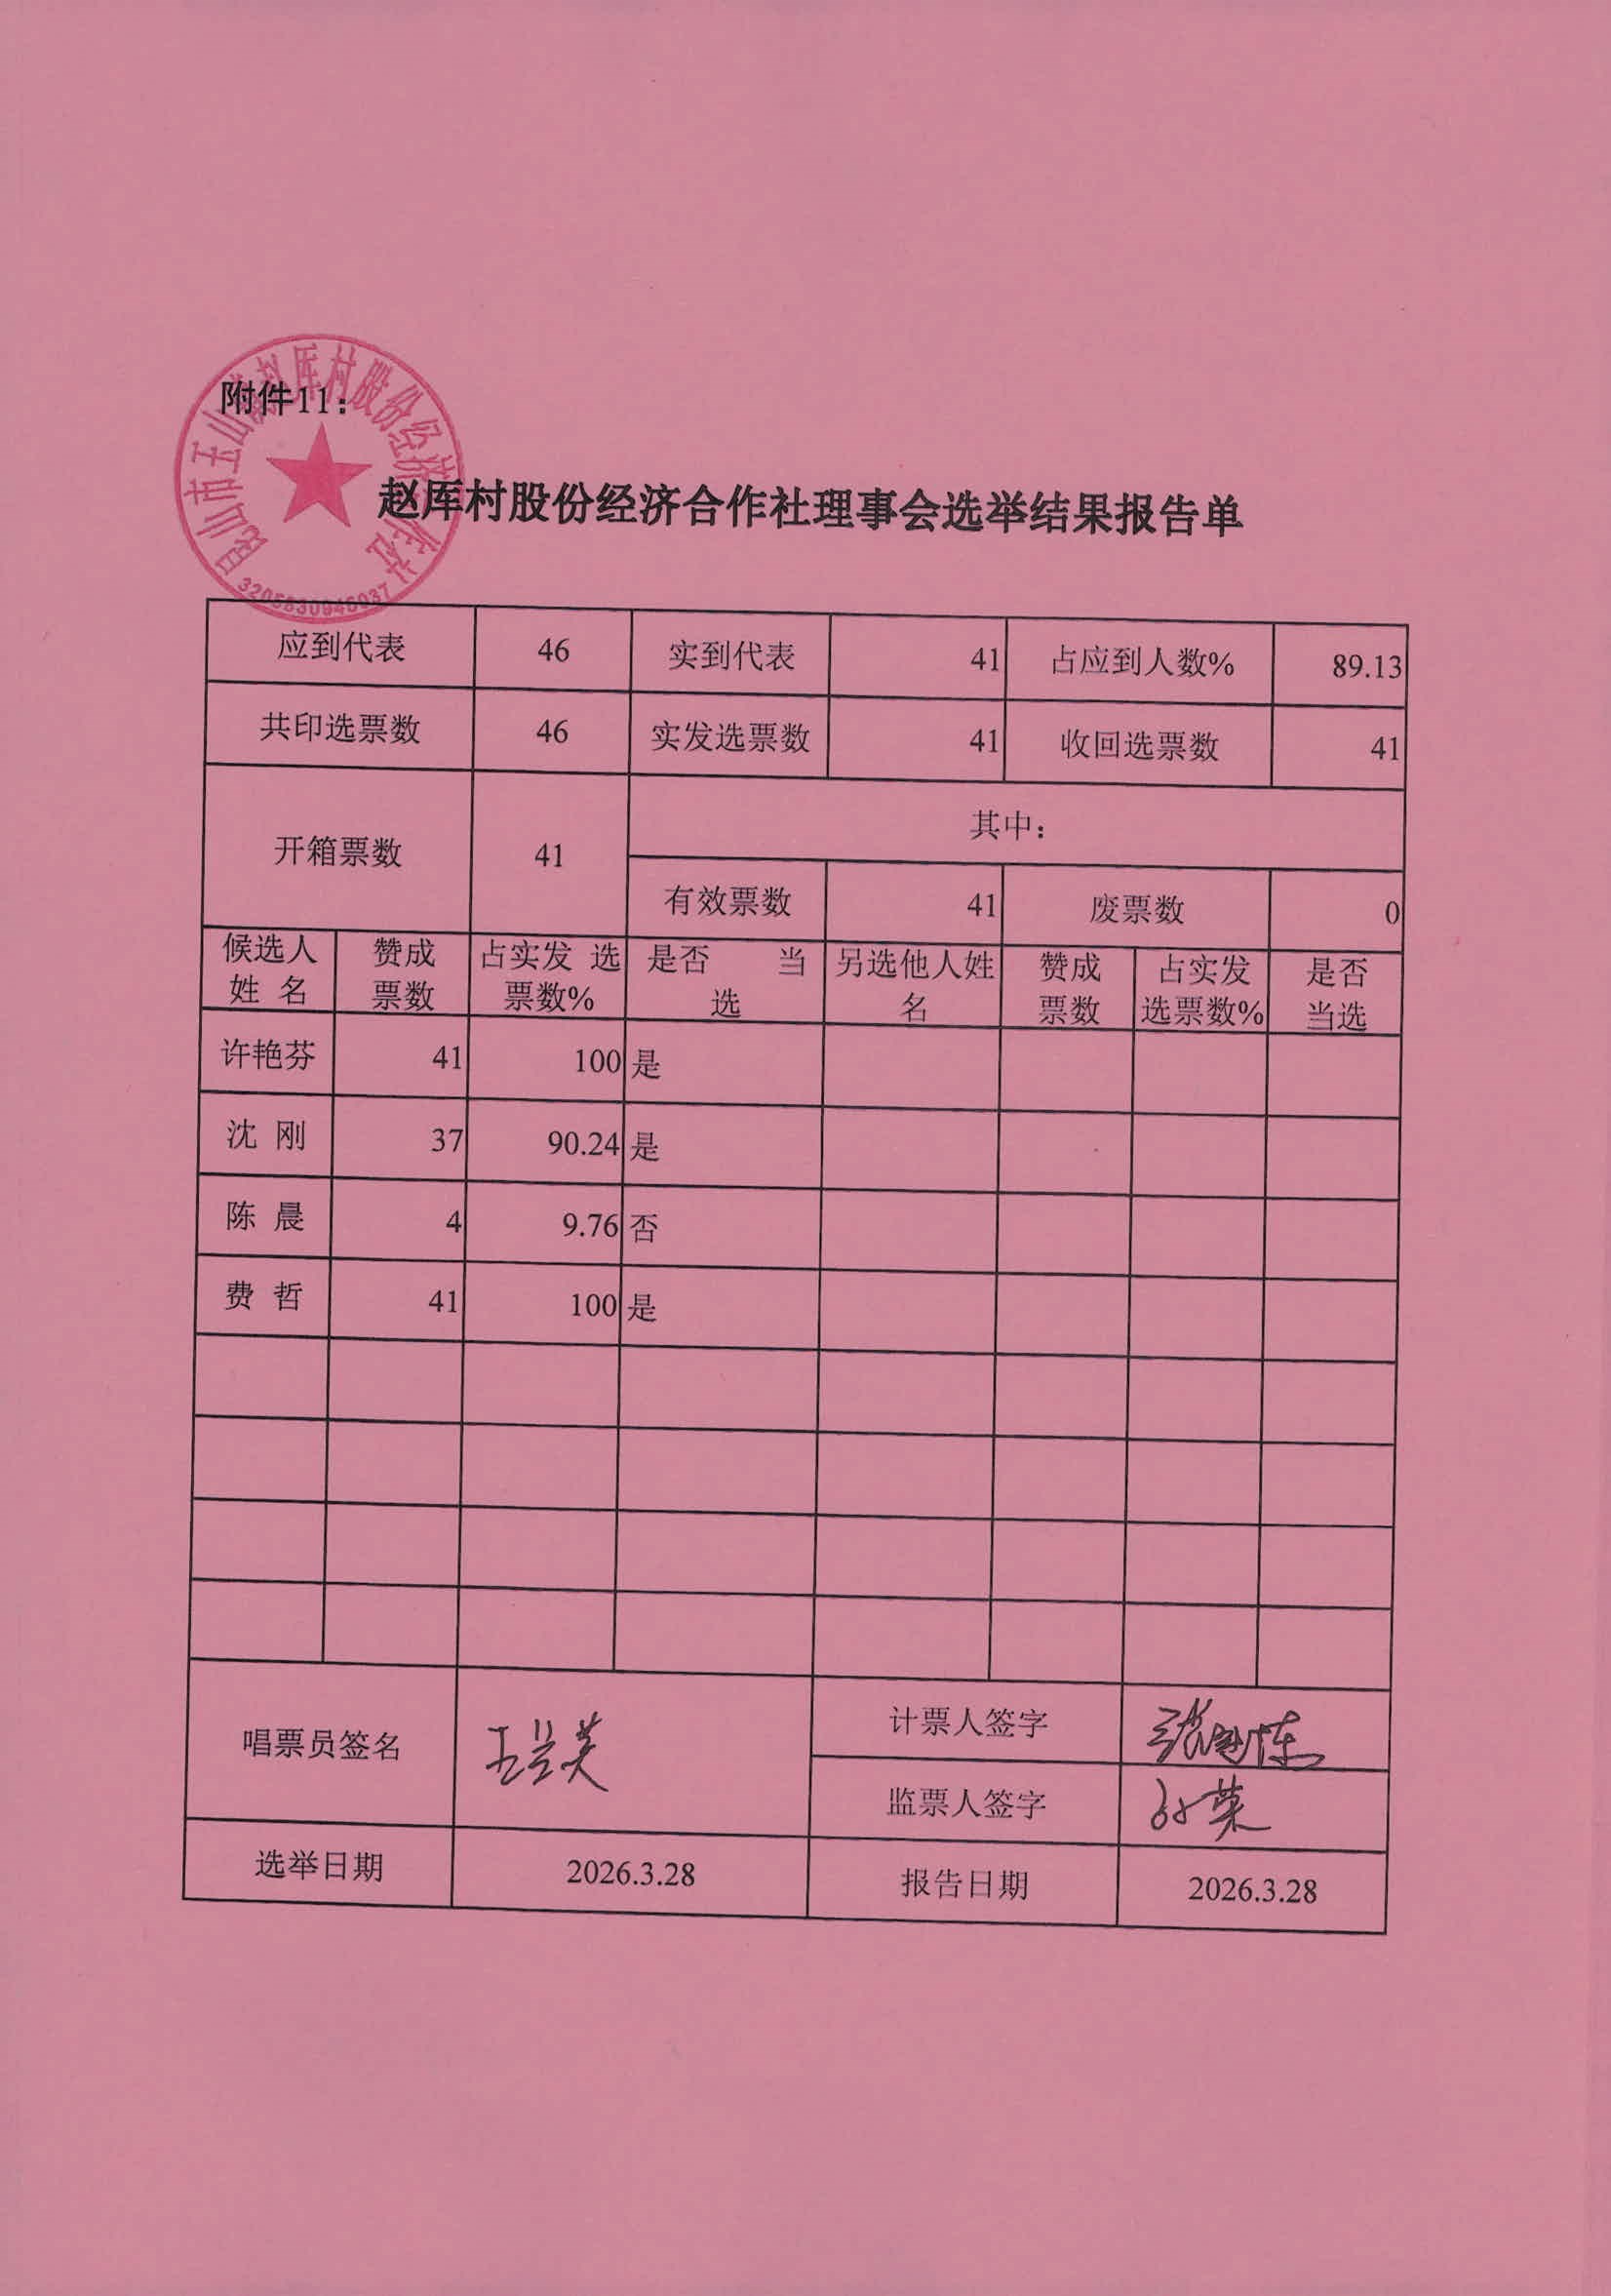 附件11：
昆山市玉山镇赵厍村股份经济合作社
3205830946037
赵厍村股份经济合作社理事会选举结果报告单
应到代表 46 实到代表 41 占应到人数% 89.13
共印选票数 46 实发选票数 41 收回选票数 41
开箱票数 41 其中：
有效票数 41 废票数 0
候选人 赞成 占实发 选 是否 当 另选他人姓 赞成 占实发 是否
姓 名 票数 票数% 选 名 票数 选票数% 当选
许艳芬 41 100 是
沈 刚 37 90.24 是
陈 晨 4 9.76 否
费 哲 41 100 是
唱票员签名 王兰英 计票人签字
监票人签字
选举日期 2026.3.28 报告日期 2026.3.28